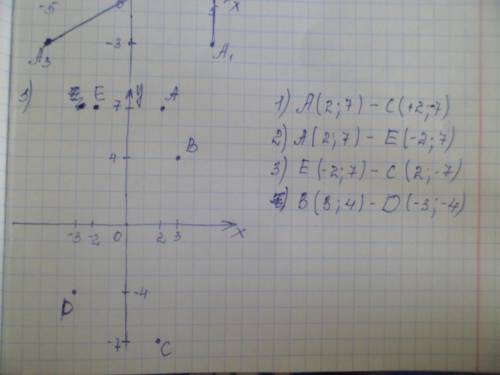 -5 0 5 x
-3
A₃ A₁
3) E y A
7
1) A(2;7) – C(+2;-7)
B
4
2) A(2;7) – E(-2;7)
3) E(-2;7) – C(2;-7)
B(3;4) – D(-3;-4)
-3 -2 0 2 3 x
D -4
-7 C